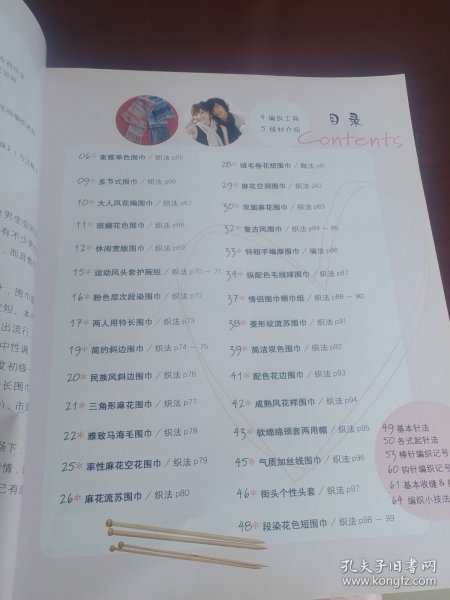 4 编织工具
5 线材介绍
目录
Contents
06* 素雅单色围巾 / 织法p65
09* 多节式围巾 / 织法p66
10* 大人风花编围巾 / 织法p67
11* 斑斓花色围巾 / 织法p68
12* 休闲宽版围巾 / 织法p69
15* 运动风头套护腕组 / 织法p70-71
16* 粉色层次段染围巾 / 织法p72
17* 两人用特长围巾 / 织法p73
19* 简约斜边围巾 / 织法p74-75
20* 民族风斜边围巾 / 织法p76
21* 三角形麻花围巾 / 织法p77
22* 雅致马海毛围巾 / 织法p78
25* 率性麻花空花围巾 / 织法p79
26* 麻花流苏围巾 / 织法p80
28* 绒毛卷花短围巾 / 做法p81
29* 麻花空洞围巾 / 织法p82
30* 双面麻花围巾 / 织法p83
32* 复古风围巾 / 织法p84-85
33* 特粗手编厚围巾 / 编法p86
34* 纵配色毛线球围巾 / 织法p87
37* 情侣围巾领巾组 / 织法p88-90
38* 菱形纹流苏围巾 / 织法p91
39* 简洁双色围巾 / 织法p92
41* 配色花边围巾 / 织法p93
42* 成熟风花样围巾 / 织法p94
43* 软绵绵颈套两用帽 / 织法p95
45* 气质加丝线围巾 / 织法p96
46* 街头个性头套 / 织法p97
48* 段染花色短围巾 / 织法p98-99
49 基本针法
50 各式起针法
53 棒针编织记号
60 钩针编织记号
61 基本收缝&
64 编织小技法
孔夫子旧书网
www.kongfz.com